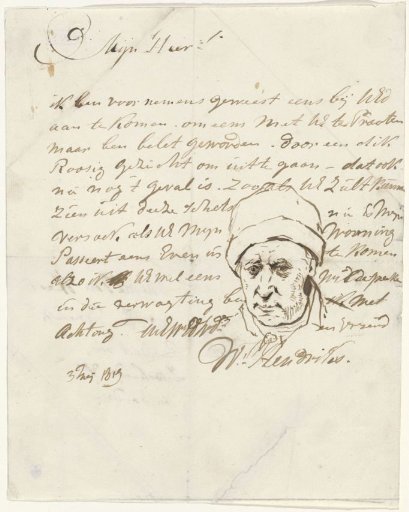 Mijn Heer
ik ben voornemens geweest eens bij UEd
aan te komen om eens met UE te Praaten
maar ben belet geworden door een dik
Roosig gezicht om uit te gaan - dat ook
nu nog 't geval is. Zooals UE zult kunnen
Zien uit deeze schets nu is mijn
versoek als UE mijn Wooning
Passeert eens Even in te komen
alzo ik UE wel eens
in die verwagting ik met
Achting UEWEDs en vriend
Ws Hendriks.
3 Meij 1819